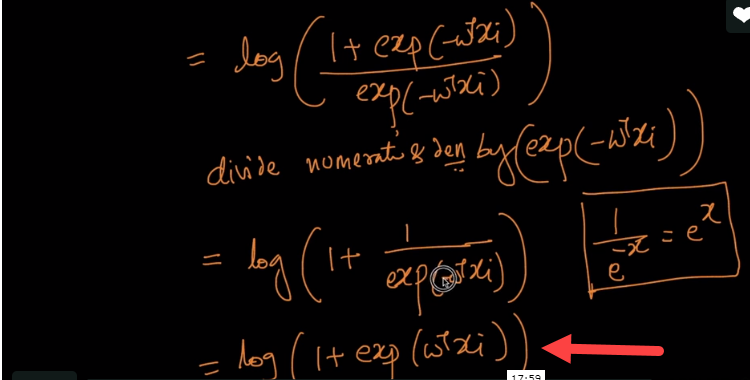 = log ( (1 + exp(-wᵀxi)) / exp(-wᵀxi) )
divide numerat & den by (exp(-wᵀxi))
= log ( 1 + 1 / exp(-wᵀxi) )
1 / e^-x = e^x
= log ( 1 + exp (wᵀxi) )
17:59